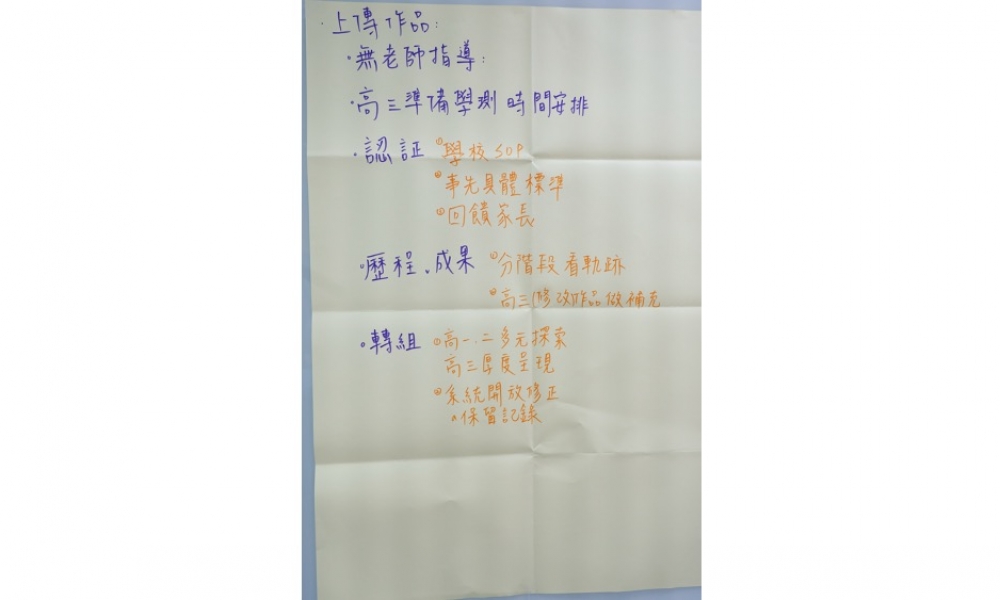 ·上傳作品:
·無老師指導:
·高三準備學測時間安排
·認証 ①學校SOP
②事先具體標準
③回饋家長
·歷程、成果 ①分階段看軌跡
②高三修改作品做補充
·轉組 ①高一、二多元探索
高三厚度呈現
②系統開放修正
·保留記錄